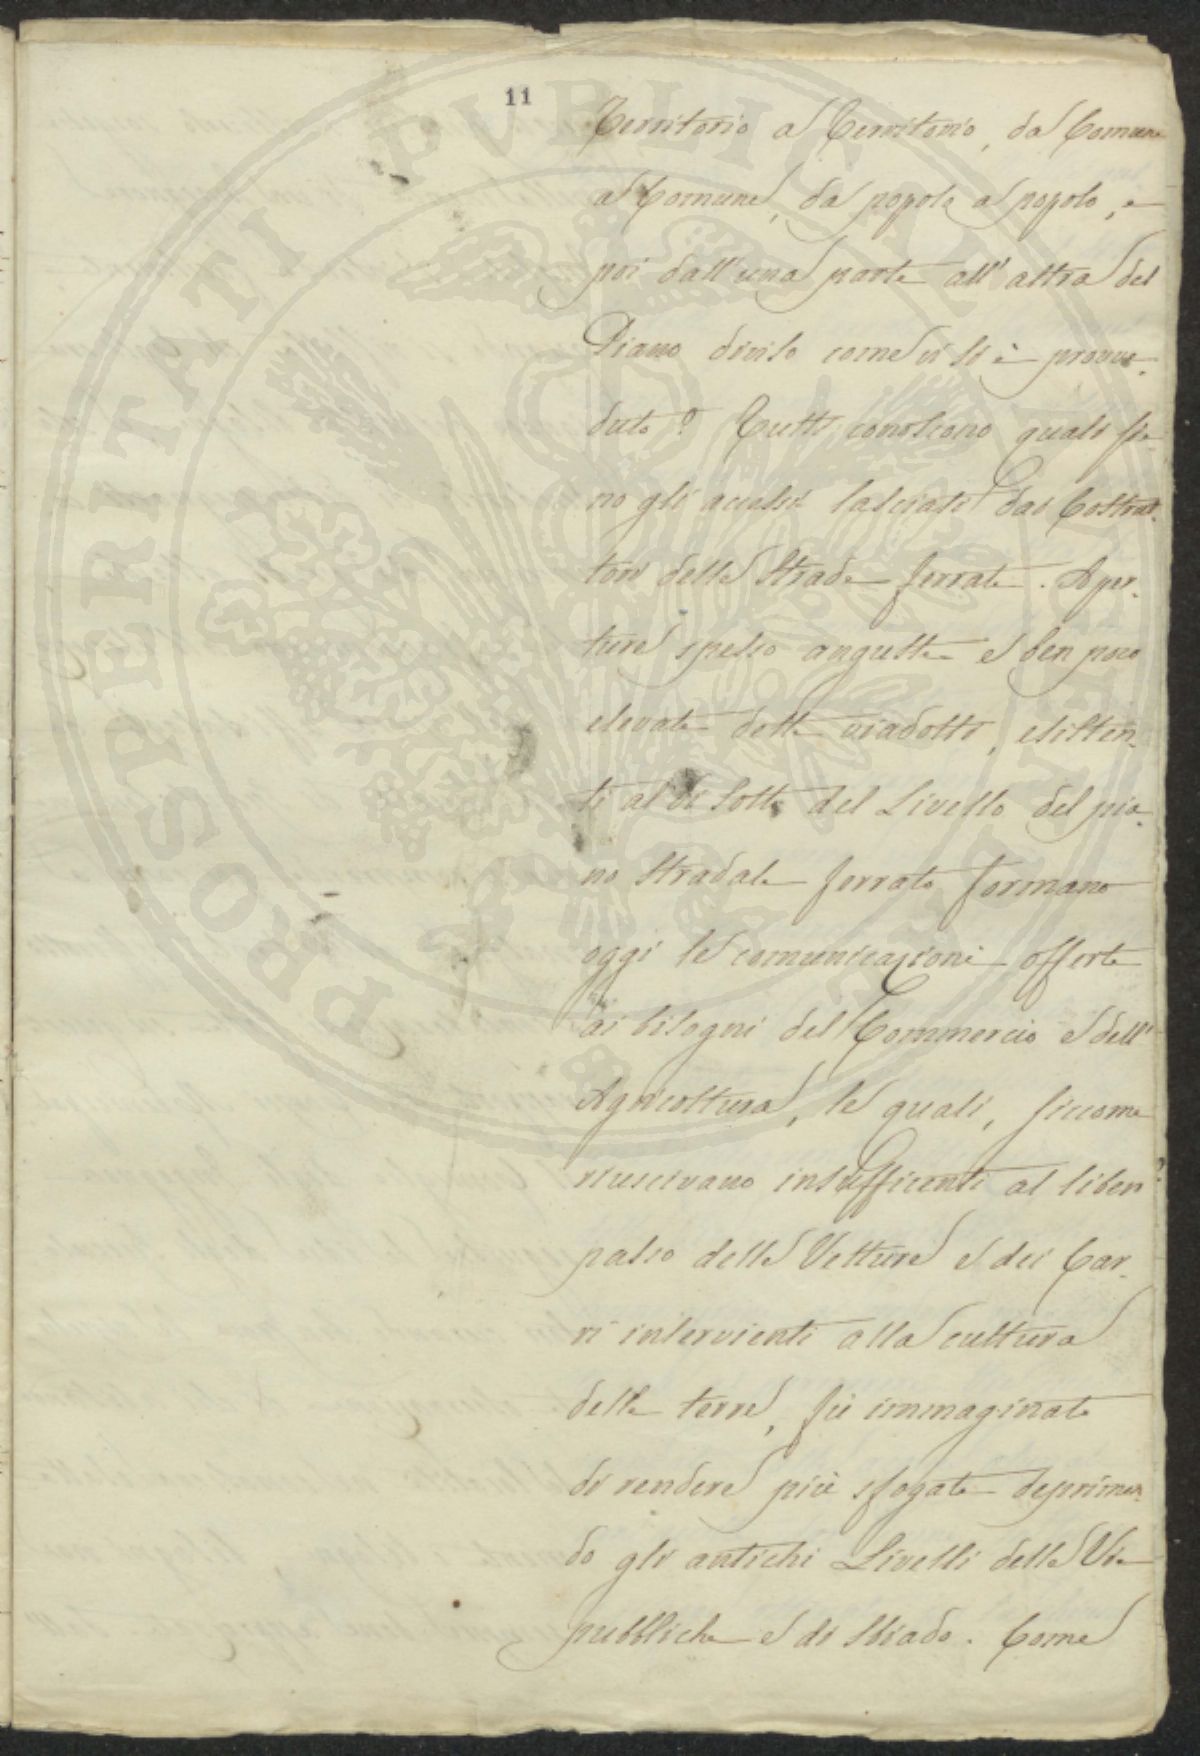 11
Territorio a Territorio, da Comune
a Comune, da popolo a popolo, e
poi dall'una parte all'altra del
Piano diviso come vi si è provve-
duto? Tutti conoscono quali sie-
no gli accessi lasciati dai Costrut-
tori delle Strade ferrate. Aper-
ture spesso anguste e ben poco
elevate dette viadotti, esisten-
ti al di sotto del Livello del pia-
no stradale ferrato formano
oggi le comunicazioni offerte
ai bisogni del Commercio e dell'
Agricoltura, le quali, siccome
riuscivano insufficenti al liber
passo delle Vetture e dei Car-
ri intervienti alla cultura
delle terre, fu immaginato
di rendere più sfogate deprimen-
do gli antichi Livelli delle Vie
pubbliche e di Strado. Come
PROSPERITATI PVBLICAE AVGENDAE